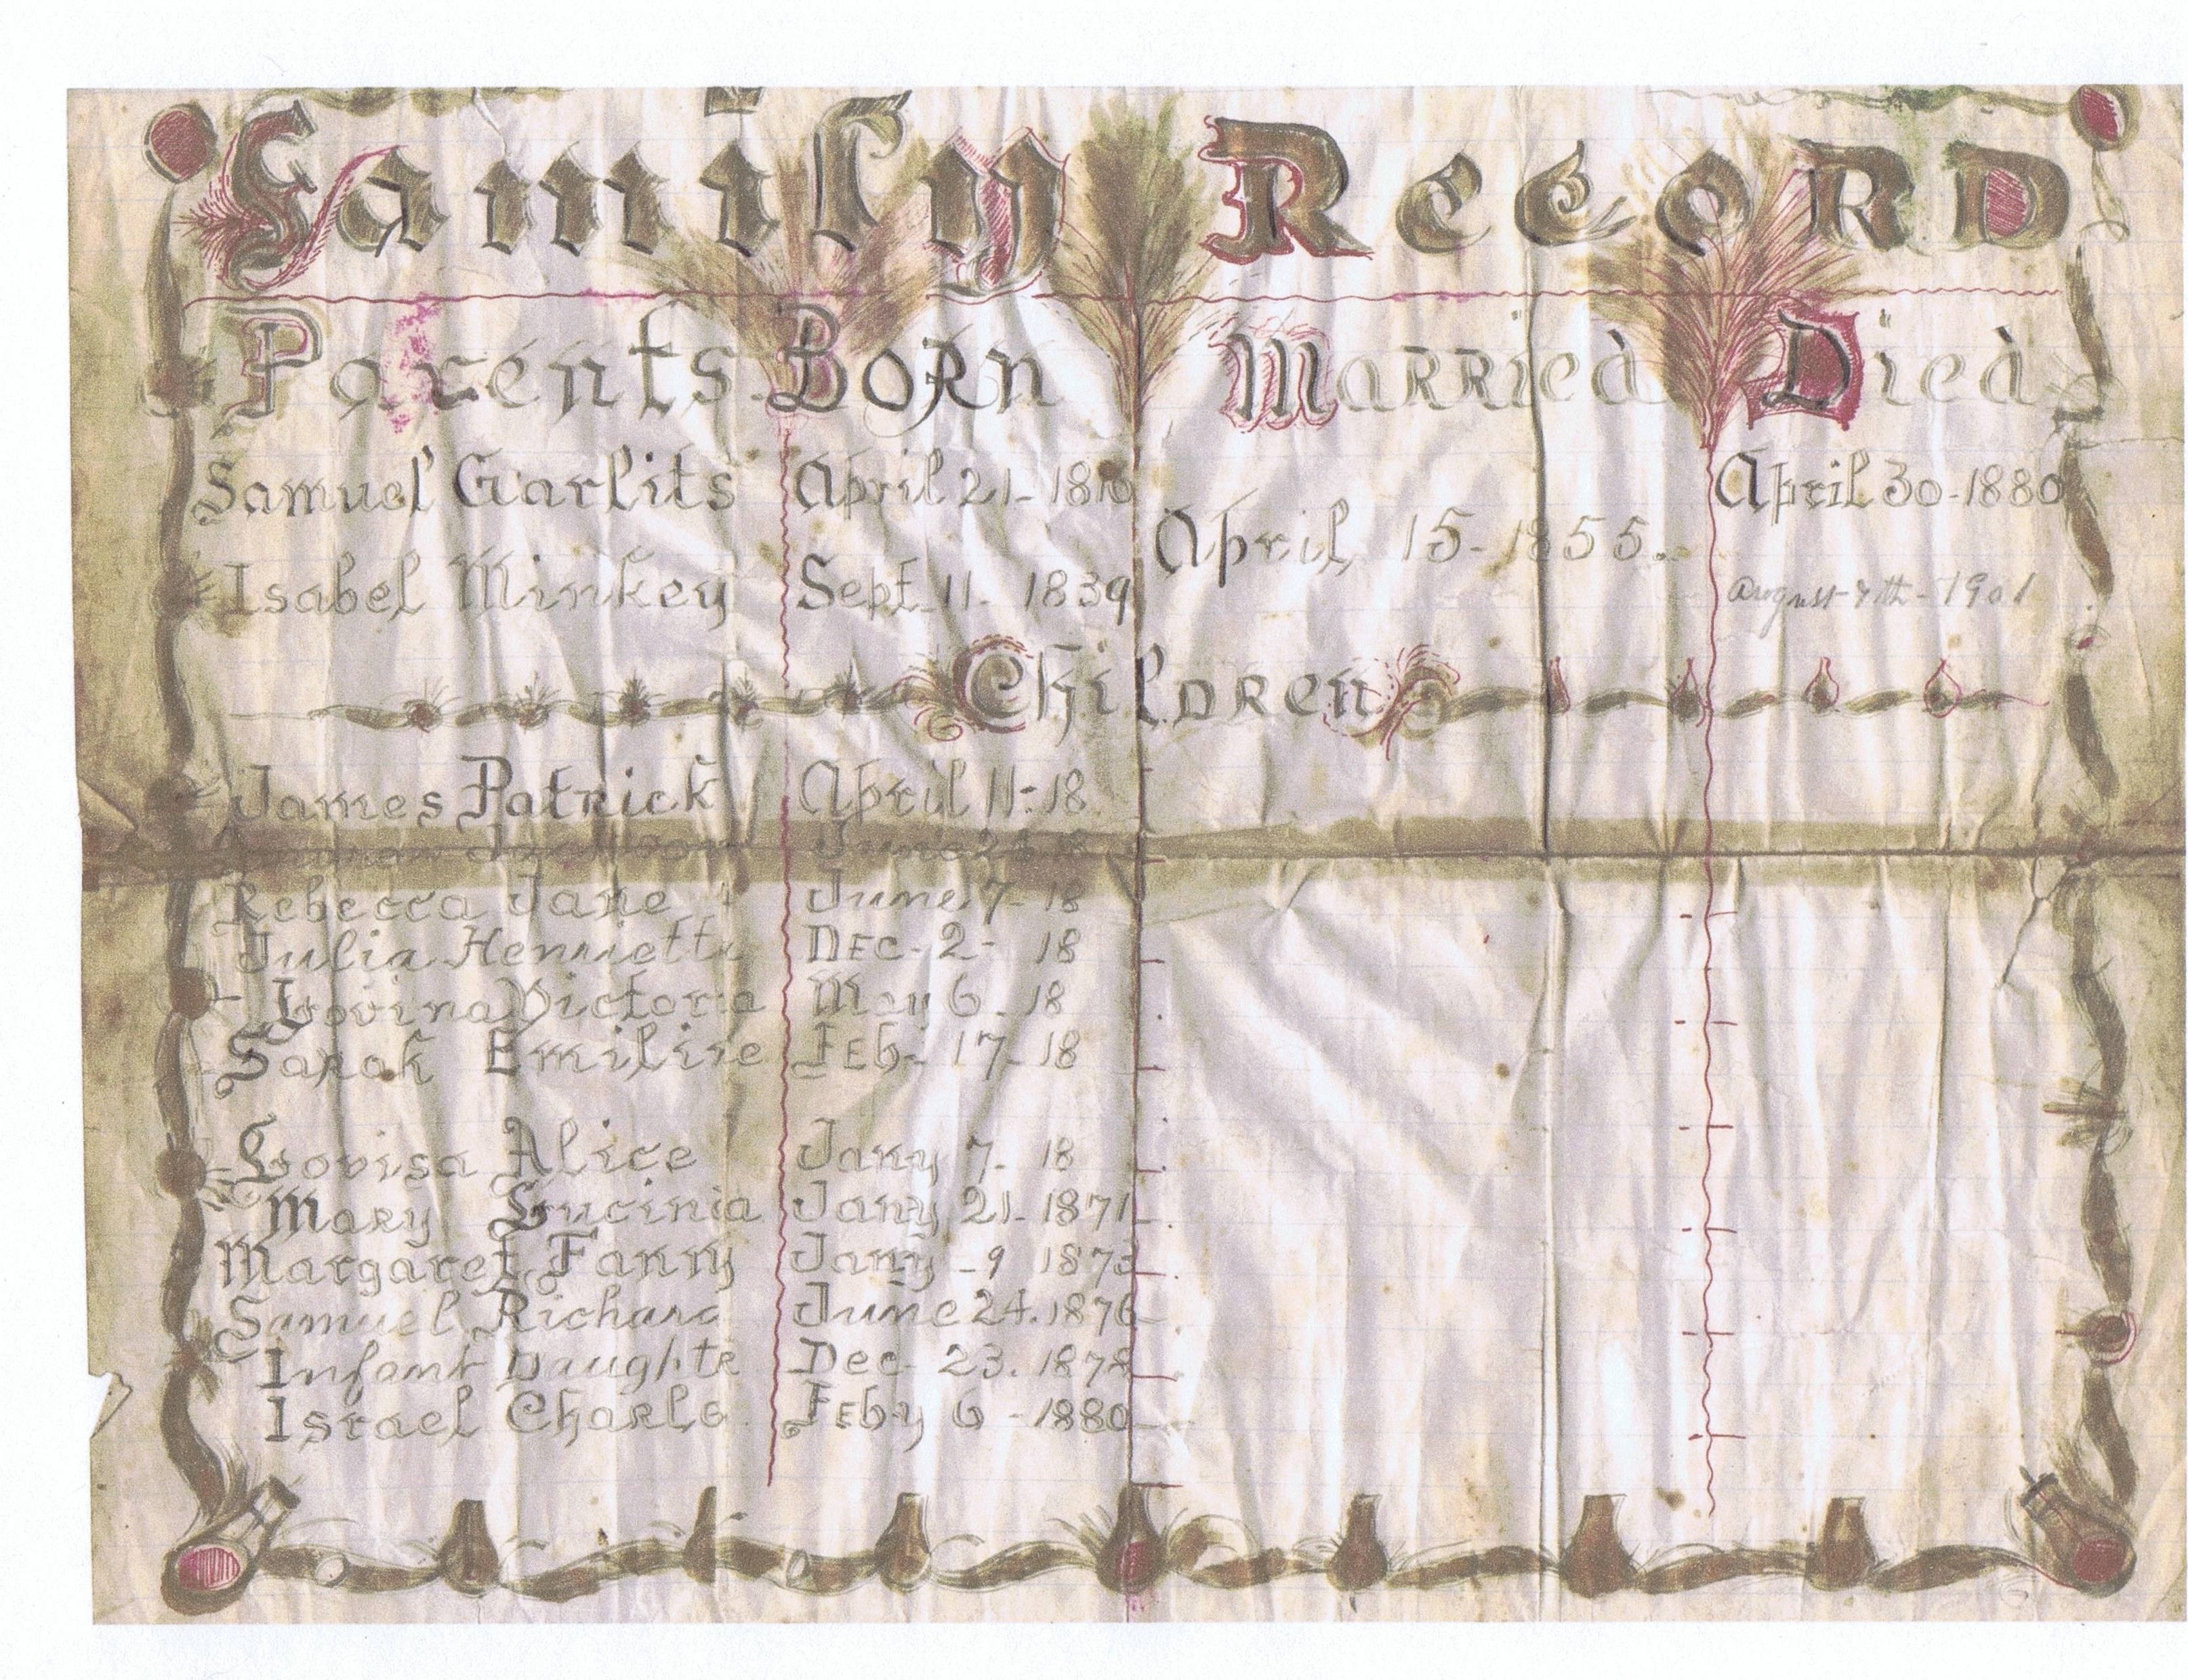 Family Record
Parents Born Married Died
Samuel Garlits April 21-1816 April 30-1880
April 15-1855.
Isabel Minkey Sept. 11-1839 August 7th-1901
Children
James Patrick April 11-18
June 24 18
Rebecca Jane June 7-18
Julia Henriett Dec-2-18
Lovina Victoria May 6. 18
Sarah Emilie Feb-17-18
Lovisa Alice Jany 7-18
Mary Lucinia Jany 21-1871
Margaret Fanny Jany-9 187
Samuel Richard June 24.1876
Infant Daughte Dec-23.1878
Israel Charls Feby 6-1880